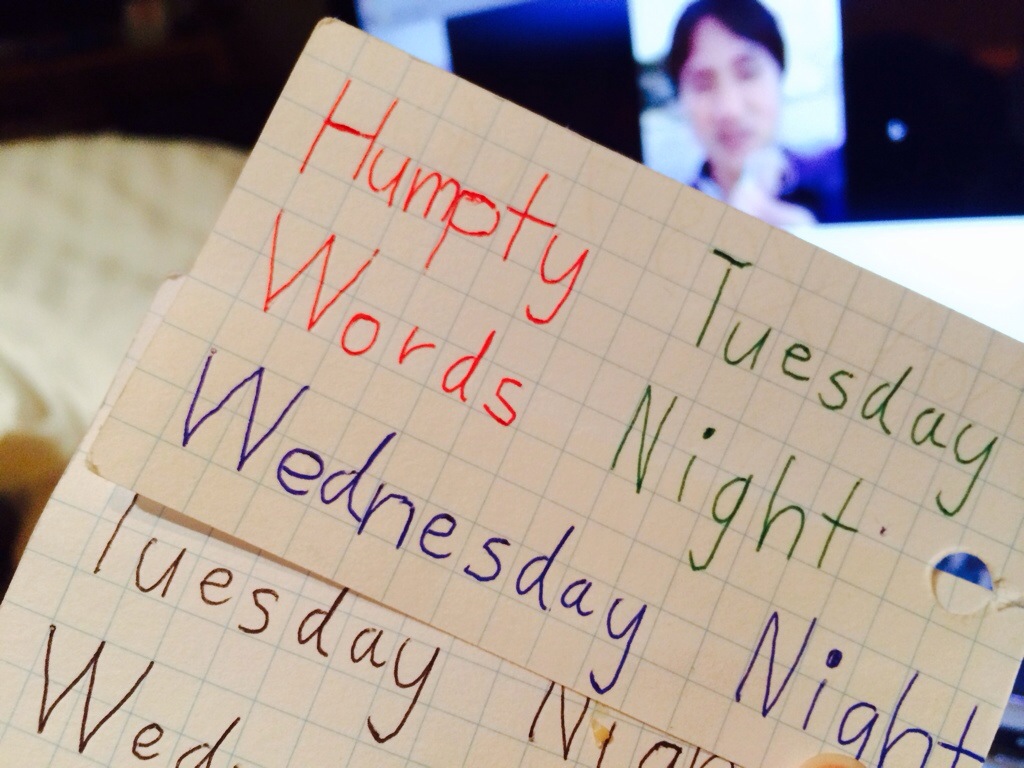 Humpty Tuesday
Words Night
Wednesday Night
Tuesday Nigh
Wed